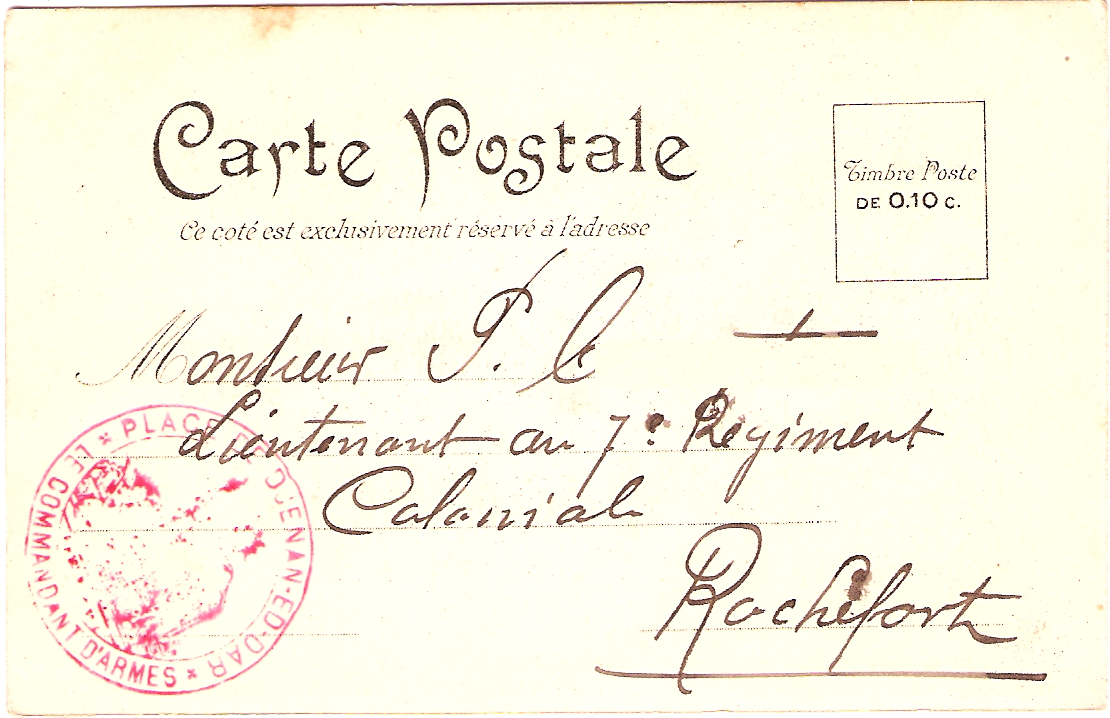 Carte Postale
Ce coté est exclusivement réservé à l'adresse
Timbre Poste
DE 0.10 C.
Monsieur P. L
Lieutenant au 7e Régiment
Coloniale
Rochefort
PLACE DE DJENAN-ED-DAR
LE COMMANDANT D'ARMES